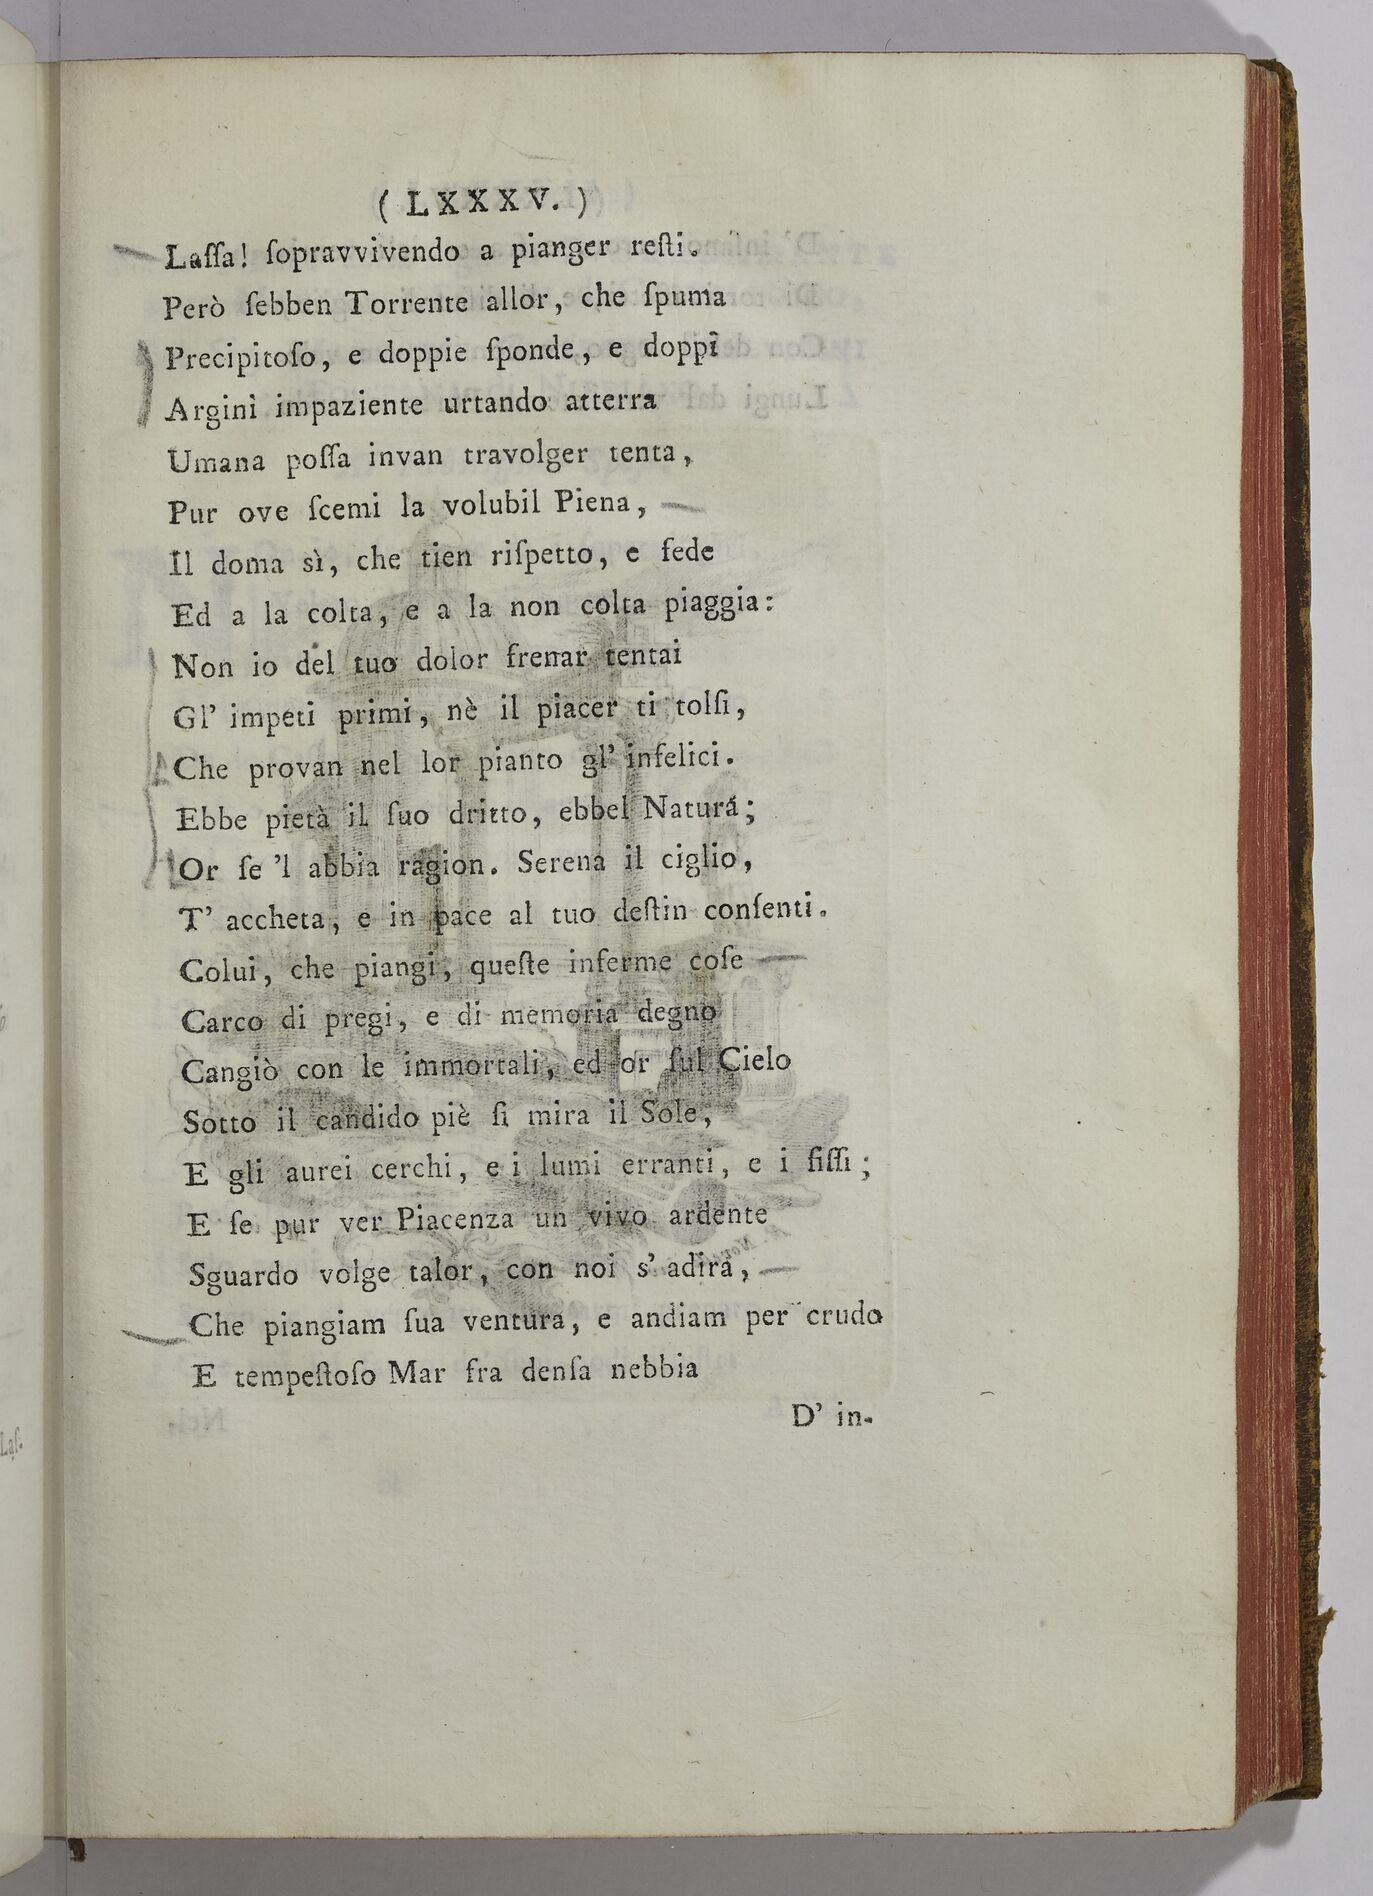 ( LXXXV. )
Laſſa! ſopravvivendo a pianger reſti.
Però ſebben Torrente allor, che ſpuma
Precipitoſo, e doppie ſponde, e doppî
Argini impaziente urtando atterra
Umana poſſa invan travolger tenta,
Pur ove ſcemi la volubil Piena,
Il doma sì, che tien riſpetto, e fede
Ed a la colta, e a la non colta piaggia:
Non io del tuo dolor frenar tentai
Gl' impeti primi, nè il piacer ti tolſi,
Che provan nel lor pianto gl' infelici.
Ebbe pietà il ſuo dritto, ebbel Natura;
Or ſe 'l abbia ragion. Serena il ciglio,
T' accheta, e in pace al tuo deſtin conſenti.
Colui, che piangi, queſte inferme coſe
Carco di pregi, e di memoria degno
Cangiò con le immortali, ed or ſul Cielo
Sotto il candido piè ſi mira il Sole,
E gli aurei cerchi, e i lumi erranti, e i fiſſi;
E ſe pur ver Piacenza un vivo ardente
Sguardo volge talor, con noi s' adira,
Che piangiam ſua ventura, e andiam per crudo
E tempeſtoſo Mar fra denſa nebbia
D' in-
Laſ-